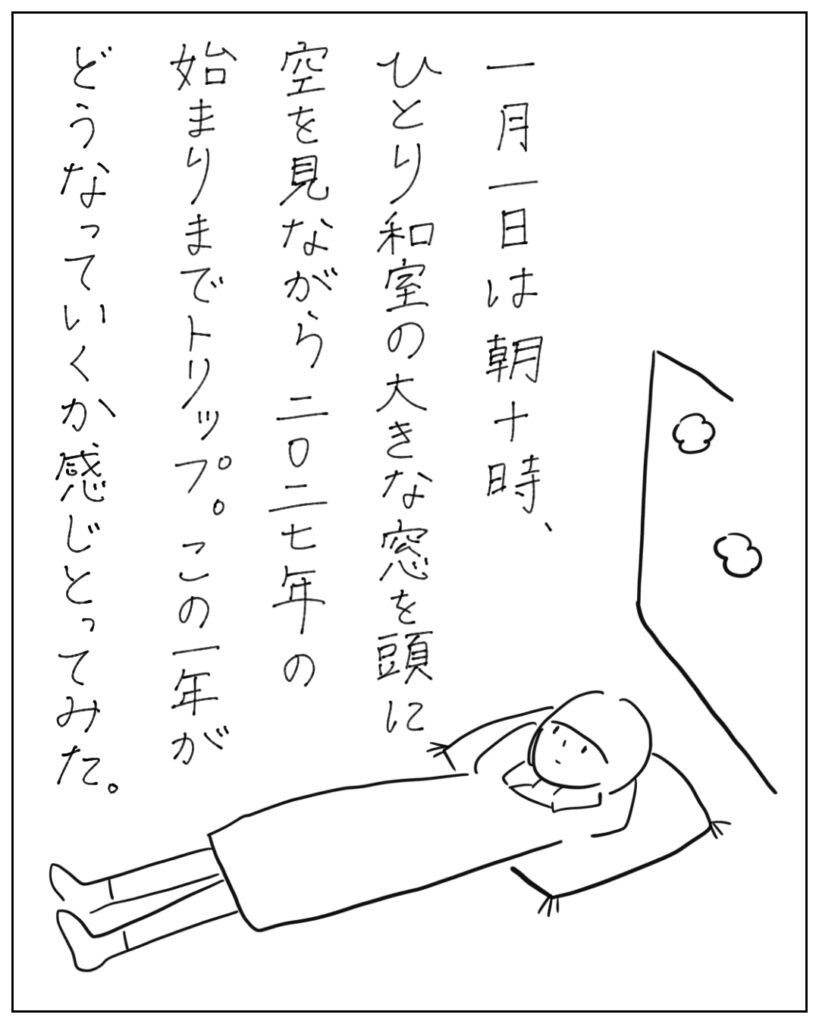 一月一日は朝十時、
ひとり和室の大きな窓を頭に
空を見ながら二〇二七年の
始まりまでトリップ。この一年が
どうなっていくか感じとってみた。